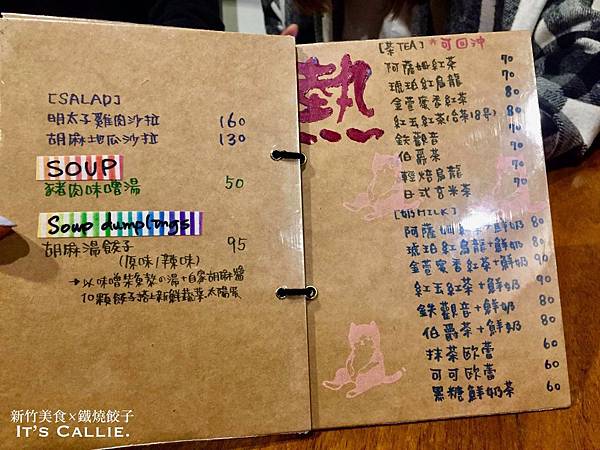 [SALAD]
明太子雞肉沙拉 160
胡麻地瓜沙拉 130
SOUP
豬肉味噌湯 50
Soup dumplings
胡麻湯餃子 95
(原味/辣味)
→以味噌柴魚熬の湯+自家胡麻醬
10顆餃子搭上新鮮蔬菜.太陽蛋
新竹美食×鐵燒餃子
IT'S CALLIE.
熱
[茶TEA] *可回沖
阿薩姆紅茶 70
琥珀紅烏龍 70
金萱蜜香紅茶 70
紅玉紅茶(台茶18号) 70
鉄觀音 70
伯爵茶 70
輕焙烏龍 70
日式玄米茶 70
[奶MILK]
阿薩姆紅茶+鮮奶 80
琥珀紅烏龍+鮮奶 80
金萱蜜香紅茶+鮮奶 90
紅玉紅茶+鮮奶 90
鉄觀音+鮮奶 80
伯爵茶+鮮奶 80
抹茶歐蕾 60
可可歐蕾 60
黑糖鮮奶茶 60